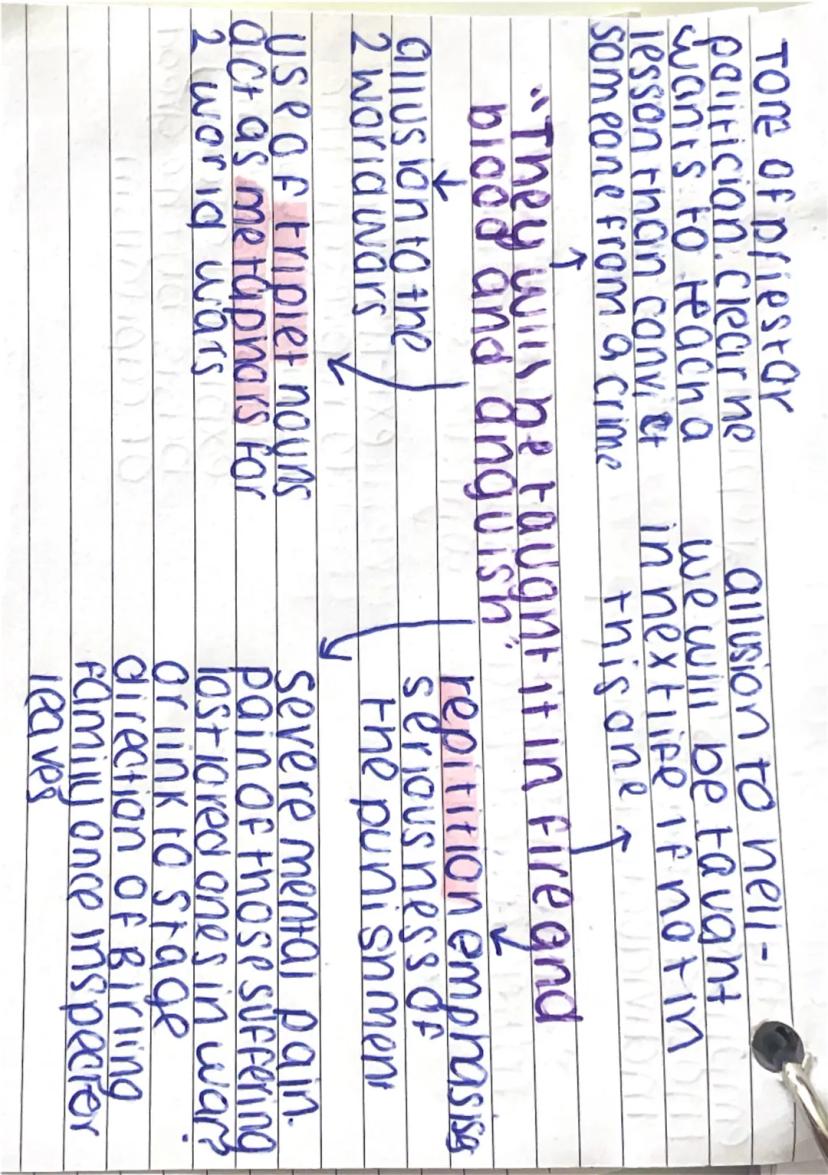 Tone of priest or
politician. Clear he
wants to teach a
lesson than convict
someone from a crime
allusion to hell -
we will be taught
in next life if not in
this one
"They will be taught it in fire and
blood and anguish"
allusion to the
2 world wars
repitition emphasises
seriousness of
the punishment
use of triplet nouns
act as metaphors for
2 world wars
severe mental pain.
pain of those suffering
lost loved ones in war?
or link to stage
direction of Birling
family once inspector
leaves